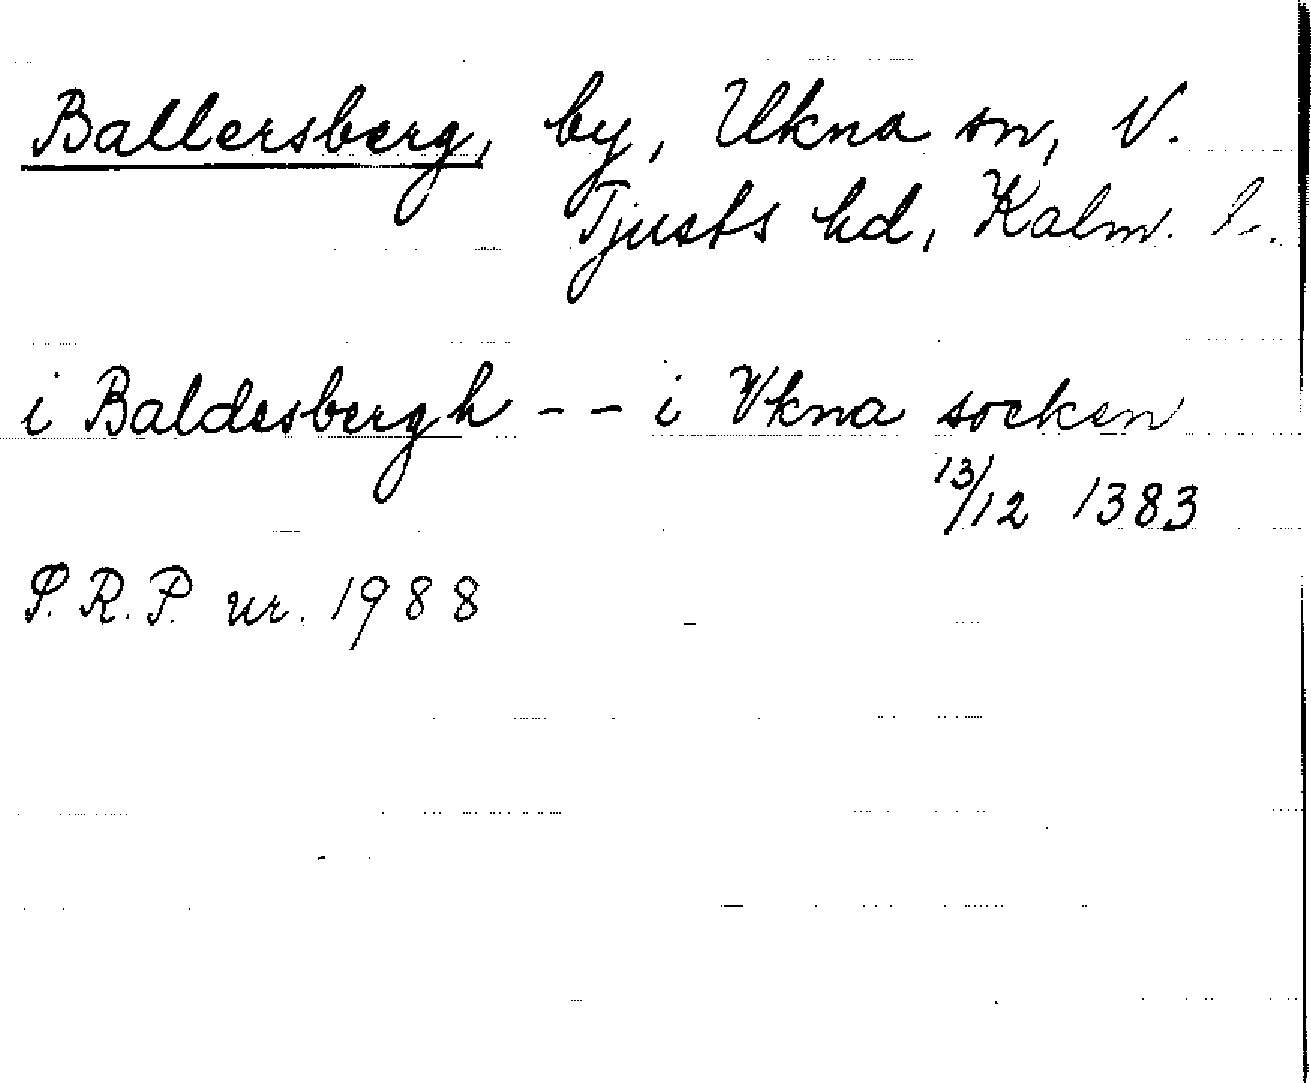 Ballersberg, by, Ukna sn, V.
Tjusts hd, Kalm. l.
i Baldesbergh - - i Vkna socken
13/12 1383
P.R.P. nr. 1988